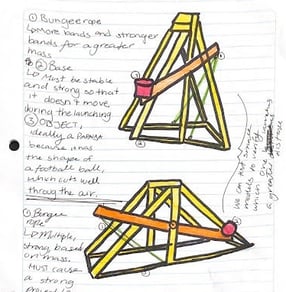 ① Bungee rope
↳ More bands and stronger
bands for a greater
mass.
② Base
↳ Must be stable
and strong so that
it doesn't move
during the launching
③ OBJECT,
ideally a PAPAYA
because it has
the shape of
a football ball,
which cuts well
throug the air.
① Bungee
rope
↳ Multiple,
strong, based
on mass.
Must cause
a strong
we can make smaller
models to identify
which one
a greater